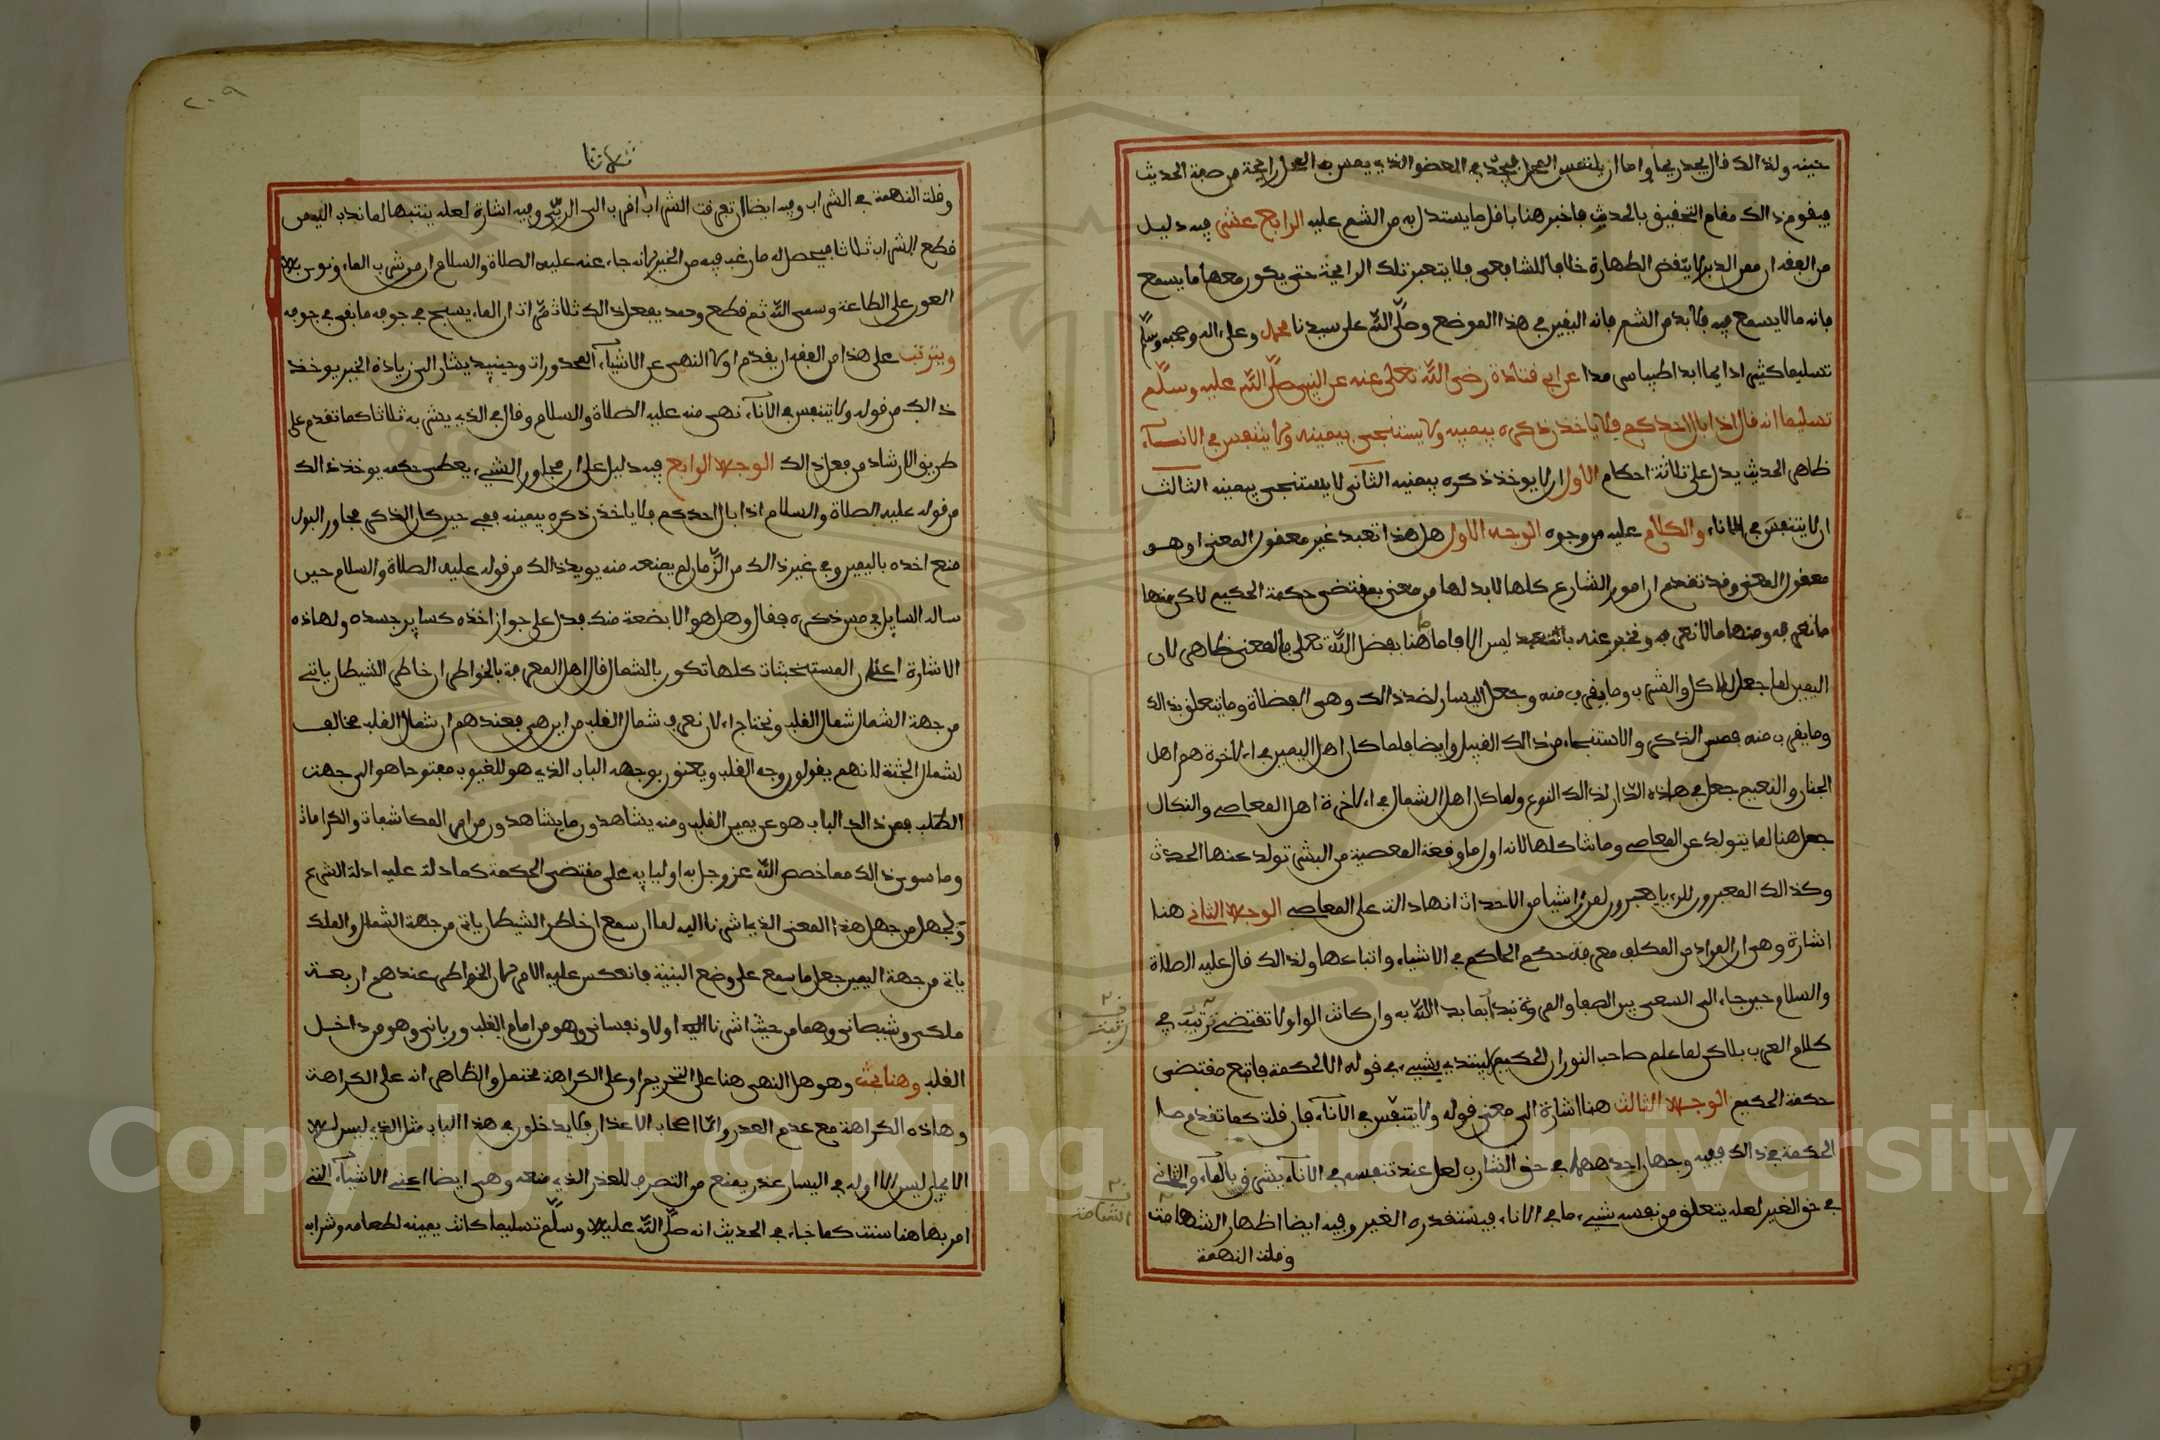 حينه ولذالك قال يجد ريحا واما ان يلتمس المحل فيجد في العضو الذي يمس به المحل رايحة من صفة الحديث
فيقوم ذالك مقام التحقيق بالحدث فاخبر هنا باقل ما يستدل به من الشم عليه الرابع عشر فيه دليل
من الفقه ان مس الدبر لا ينقض الطهارة خلافا للشافعي فلا يتعين تلك الرايحة حتى يكون معها ما يسمع
فانه ما لا يسمع فيه فلا بد من الشم فانه اليقين في هذا الموضع وصلى الله على سيدنا محمد وعلى اله وصحبه وسلم
تسليما كثيرا دايما ابدا طيبا سرمدا عن ابي قتادة رضي الله تعلى عنه عن النبي صلى الله عليه وسلم
تسليما انه قال اذا بال احدكم فلا ياخذ ذكره بيمينه ولا يستنجي بيمينه ولا يتنفس في الاناء
ظاهر الحديث يدل على ثلاثة احكام الاول ان لا يوخذ ذكره بيمينه الثاني لا يستنجي بيمينه الثالث
ان لا يتنفس في الاناء والكلام عليه من وجوه الوجه الاول هل هذا تعبد غير معقول المعنى او هو
معقول المعنى وقد تقدم ان امور الشارع كلها لا بد لها من معنى بمقتضى حكمة الحكيم لاكن منها
ما نعرفه ومنها ما لا نعرفه ونخبر عنه بالتعبد ليس الا فاما هنا بفضل الله تعلى فالمعنى ظاهر لان
اليمين لما جعل للاكل والشرب وما يقرب منه وجعل اليسار لضد ذالك وهي الفضلة وما يتعلق بذالك
وما يقرب منه فمس الذكر والاستنجاء من ذالك القبيل وايضا فلما كان اهل اليمين في الاخرة هم اهل
الجنان والنعيم جعل في هاذه الدار لذالك النوع ولما كان اهل الشمال في الاخرة اهل المعاصي والنكال
جعل هنا لما يتولد عن المعاصي وما شاكلها لانه اول ما وقعة المعصية من البشر تولد عنها الحدث
وكذالك المعبرون للرءيا يعبرون لمن رءا شيا من الاحداث انها دالة على المعاصي الوجه الثاني هنا
اشارة وهي ان المراد من المكلف معرفة حكم الحاكم في الاشياء واتباعها ولذالك قال عليه الصلاة
والسلام حين جاء الى السعي بين الصفا والمروة نبدا بما بدا الله به وان كانت الواو لا تقتضي ترتيبا في
كلام العرب بلاكن لما علم صاحب النور ان الحكيم لا يبتدي بشيء في قوله الا لحكمة فاتبع مقتضى
حكمة الحكيم الوجه الثالث هنا اشارة الى معنى قوله ولا يتنفس في الاناء فان قلت كما تقدم ما
الحكمة في ذالك ففيه وجهان احدهما في حق الشارب لعل عند تنفسه في الاناء يشرق بالماء والثاني
في حق الغير لعله يتعلق من نفسه شيء ما في الاناء فيستقدره الغير وفيه ايضا اظهار الشهامة
وقلت النهمة
ترتيب
الشهامة
٢٠٩
ثلاثا
وقلت النهمة في الشراب وفيه ايضا ان تعرفت الشراب اقرب الى الري وفيه اشارة لعله ينتبها لما ندب اليه من
قطع الشراب ثلاثا فيحصل له ما رغب فيه من الخير لانه جاء عنه عليه الصلاة والسلام ان من شرب الماء ونوى به
العون على الطاعة وسمى الله ثم قطع وحمد يفعل ذالك ثلاث مرات ان الماء يسبح في جوفه ما بقي في جوفه
ويترتب على هذا من الفقه ان يقدم اولا النهي عن الاشياء المحدورات وحينيذ يشار الى زيادة الخير يوخذ
ذالك من قوله ولا يتنفس في الاناء نهى منه عليه الصلاة والسلام وقال في الذي يشربه ثلاثا كما تقدم على
طريق الارشاد من فعل ذالك الوجه الرابع فيه دليل على ان مجاور الشيء يعطى حكمه يوخذ ذالك
من قوله عليه الصلاة والسلام اذا بال احدكم فلا ياخذ ذكره بيمينه ففي حين كان الذكر مجاور البول
منع اخذه باليمين وفي غير ذالك من الزمان لم يمنعه منه يويد ذالك من قوله عليه الصلاة والسلام حين
ساله السايل في مس ذكره فقال وهل هو الا بضعة منك فدل على جواز اخذه كساير جسده ولهاذه
الاشارة المستخبثات كلها تكون بالشمال قال اهل المعرفة بالخواطر ان خاطر الشيطان ياتي
من جهة الشمال شمال القلب ونحتاج الان نعرف شمال القلب من اين هي فعندهم ان شمال القلب مخالف
لشمال الجثة لانهم يقولون وجه القلب ويعنون بوجهه الباب الذي هو للغيوب مفتوحا هو الى جهة
الصلب فمن ذالك الباب هو عن يمين القلب ومنه يشاهدون ما يشاهدون من امر المكاشفات والكرامات
وما سوى ذالك مما خصص الله عز وجل به اوليايه على مقتضى الحكمة كما دلت عليه ادلة الشرع
ولجهل من جهل هذا المعنى الذي اشرنا اليه لما ان سمع ان خاطر الشيطان ياتي من جهة الشمال والملك
ياتي من جهة اليمين جعل ما سمع على وضع البنية فانعكس عليه الامر لان الخواطر عندهم اربعة
ملكي وشيطاني وهما من حيث اشرنا اليه اولا ونفساني وهو من امام القلب ورباني وهو من داخل
القلب وهنا بحث وهو هل النهي هنا على التحريم او على الكراهة محتمل والظاهر انه على الكراهة
وهاذه الكراهة مع عدم العدر واما اصحاب الاعذار فلا يدخلون في هذا الباب مثل الذي ليس له
الا يد ليس الا او له في اليسار عذر يمنع من التصرف للعذر الذي منعه وهي ايضا اعني الاشياء التي
امر بها هنا سنت كما جاء في الحديث انه صلى الله عليه وسلم تسليما كانت يمينه لطعامه وشرابه
Copyright © King Saud University
1957